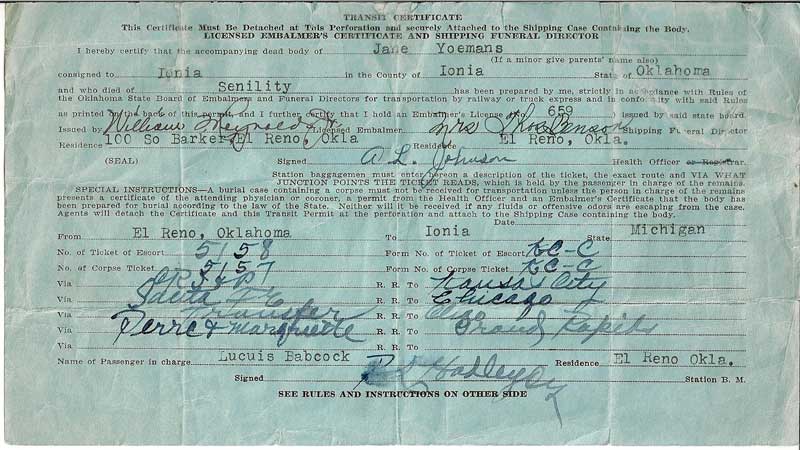 TRANSIT CERTIFICATE
This Certificate Must Be Detached at This Perforation and securely Attached to the Shipping Case Containing the Body.
LICENSED EMBALMER'S CERTIFICATE AND SHIPPING FUNERAL DIRECTOR
I hereby certify that the accompanying dead body of Jane Yoemans
(If a minor give parents' name also)
consigned to Ionia in the County of Ionia State of Oklahoma
and who died of Senility has been prepared by me, strictly in accordance with Rules of
the Oklahoma State Board of Embalmers and Funeral Directors for transportation by railway or truck express and in conformity with said Rules
as printed on the back of this permit, and I further certify that I hold an Embalmer's License No. 659 issued by said state board.
Issued by William Licensed Embalmer. Mrs Shipping Funeral Director
Residence 100 So Barker El Reno, Okla Residence El Reno, Okla.
(SEAL) Signed A. L. Johnson Health Officer or Registrar.
Station baggagemen must enter hereon a description of the ticket, the exact route and VIA WHAT
JUNCTION POINTS THE TICKET READS, which is held by the passenger in charge of the remains.
SPECIAL INSTRUCTIONS—A burial case containing a corpse must not be received for transportation unless the person in charge of the remains
presents a certificate of the attending physician or coroner, a permit from the Health Officer and an Embalmer's Certificate that the body has
been prepared for burial according to the law of the State. Neither will it be received if any fluids or offensive odors are escaping from the case.
Agents will detach the Certificate and this Transit Permit at the perforation and attach to the Shipping Case containing the body.
Date
From El Reno, Oklahoma To Ionia State Michigan
No. of Ticket of Escort 5158 Form No. of Ticket of Escort KC-C
No. of Corpse Ticket 5157 Form No. of Corpse Ticket KC-C
Via R. R. To Kansas City
Via R. R. To Chicago
Via Transfer R. R. To
Via Perre & Marquette R. R. To Grand Rapids
Via R. R. To
Name of Passenger in charge Lucuis Babcock Residence El Reno Okla.
Signed Hadley Station B. M.
SEE RULES AND INSTRUCTIONS ON OTHER SIDE